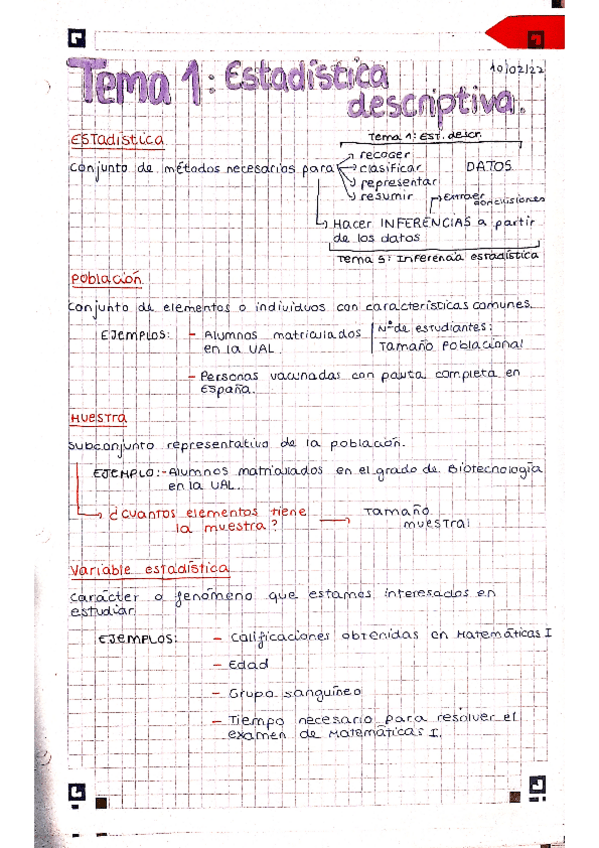 10/02/22
Tema 1: Estadística
descriptiva.
Tema 1: EST. descr.
ESTadística
Conjunto de métodos necesarios para
recoger
clasificar
representar
resumir
DATOS
extraer
conclusiones
Hacer INFERENCIAS a partir
de los datos
Tema 5: Inferencia estadística
Población
Conjunto de elementos o individuos con características comunes.
EJEMPLOS: - Alumnos matriculados
en la UAL.
Nº de estudiantes:
Tamaño Poblacional
- Personas vacunadas con pauta completa en
España.
Muestra
Subconjunto representativo de la población.
EJEMPLO: - Alumnos matriculados en el grado de Biotecnología
en la UAL.
¿Cuantos elementos tiene
la muestra?
Tamaño
muestral
Variable estadística
Carácter o fenómeno que estamos interesados en
estudiar
EJEMPLOS: - Calificaciones obtenidas en Matemáticas I
- Edad
- Grupo sanguíneo
- Tiempo necesario para resolver el
examen de Matemáticas I.